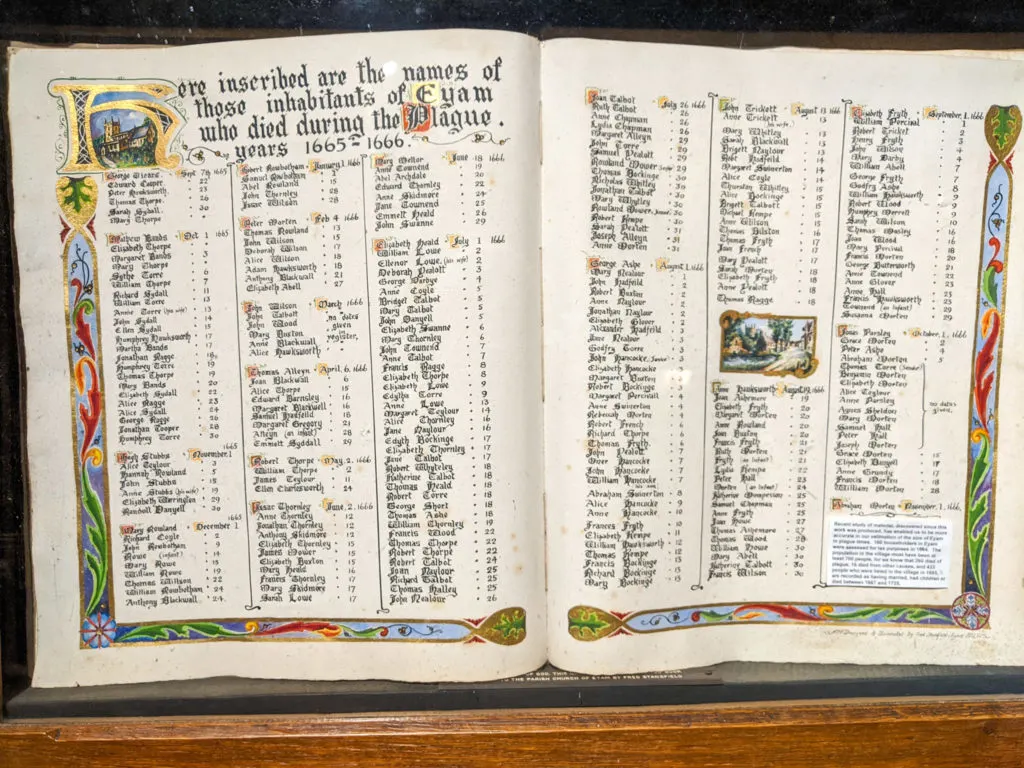 Here inscribed are the names of
those inhabitants of Eyam
who died during the Plague.
years 1665-1666.
George Vicars Sept 7th 1665
Edward Cooper 22
Peter Hawksworth 23
Thomas Thorpe 26
Sarah Sydall 30
Mary Thorpe 30
Mathew Bands Oct 1 1665
Elizabeth Thorpe
Margaret Bands 3
Mary Thorpe
Sythe Torre
William Thorpe 7
Richard Sydall 11
William Torre 13
Annie Torre (his wife) 13
John Sydall 14
Ellen Sydall 15
Humphrey Hawksworth 17
Martha Bands 17
Jonathan Ragge 18
Humphrey Torre 19
Thomas Thorpe 19
Mary Bands 20
Elizabeth Sydall 22
Alice Ragge 23
Alice Sydall 24
George Ragge 26
Jonathan Cooper 28
Humphrey Torre 30
1665
Hugh Stubbs November 1
Alice Teylour 3
Hannah Rowland 5
John Stubbs 15
Anne Stubbs (his wife) 19
Elizabeth Warrington 29
Randoll Danyell 30
1665
Mary Rowland December 1
Richard Coyle 2
John Rowbotham 9
Rowe (infant) 14
Mary Rowe 15
William Rowe 19
Thomas Willson 22
William Rowbotham 24
Anthony Blackwall 24
Robert Rowbotham January 1, 1666
Samuel Rowbotham 1
Abel Rowland 15
John Thornley 28
Isaac Wilson 28
Peter Morten Feb 4 1666
Thomas Rowland 13
John Wilson 15
Deborah Wilson 17
Alice Wilson 18
Adam Hawksworth 18
Anthony Blackwall 21
Elizabeth Abell 27
John Wilson March 1666
John Talbott no dates
John Wood given
Mary Buxton in
Anne Blackwall register,
Alice Hawksworth
Thomas Alleyn April 6, 1666
Joan Blackwall 6
Alice Thorpe 15
Edward Barnsley 16
Margaret Blackwell 16
Samuel Hadfeild 18
Margaret Gregory 21
Alleyn (an infant) 28
Emmott Syddall 29
Robert Thorpe May 2, 1666
William Thorpe 2
James Teylour 11
Ellen Charlesworth 24
Isaac Thornley June 2, 1666
Anne Thornley 12
Jonathan Thornley 12
Anthony Skidmore 12
Elizabeth Thornley 15
James Mower 15
Elizabeth Buxton 15
Mary Heald 16
Francis Thornley 17
Mary Skidmore 17
Sarah Lowe 17
Mary Mellow June 18 1666
Anne Townend 19
Abel Archdale 20
Edward Thornley 22
Anne Skidmore 24
Jane Townend 25
Emmett Heald 26
John Swanne 29
Elizabeth Heald July 1 1666
William Lowe 2
Ellenor Lowe, (his wife) 2
Deborah Pealott 3
George Darbye 4
Anne Coyle 5
Bridget Talbot 5
Mary Talbot 5
John Danyell 5
Elizabeth Swanne 6
Mary Thornley 6
John Townend 7
Anne Talbot 7
Francis Ragge 8
Elizabeth Thorpe 8
Elizabeth Lowe 9
Edytha Torre 9
Anne Lowe 13
Margaret Teylour 14
Alice Thornley 16
Jane Naylour 16
Edyth Bockinge 17
Elizabeth Thornley 17
Jane Talbot 17
Robert Whyteley 18
Katherine Talbot 18
Thomas Heald 18
Robert Torre 18
George Short 18
Thomas Ashe 18
William Thornley 19
Francis Wood 22
Thomas Thorpe 22
Robert Thorpe 22
Robert Talbot 24
Joan Nealour 25
Richard Talbot 25
Thomas Halley 25
John Nealour 26
Joan Talbot July 26 1666
Ruth Talbot 26
Anne Chapman 26
Lydia Chapman 26
Margaret Alleyn 29
John Torre 29
Samuel Pealott 29
Rowland Mower 29
Thomas Bockinge 30
Nicholas Whitley 30
Jonathan Talbot 30
Mary Whytley 30
Rowland Mower 30
Robert Kempe 30
Sarah Pealott 31
Joseph Alleyn 31
Anne Morten 31
George Ashe August 1, 1666
Mary Nealour 1
John Hadfeild 2
Robert Buxton 2
Anne Naylour 2
Jonathan Naylour 2
Elizabeth Glover 2
Alexander Hadfeild 3
Jane Nealour 3
Godfry Torre 3
John Hancocke, Junior 3
Elizabeth Hancocke 3
Margaret Buxton 3
Robert Bockinge 3
Margaret Percivall 4
Anne Swinerton 4
Rebecka Morten 4
Robert French 6
Richard Thorpe 6
Thomas Fryth 6
John Pealott 7
Oner Hancocke 7
John Hancocke 7
William Hancocke 7
Abraham Swinerton 8
Alice Hancocke 9
Anne Hancocke 10
Frances Fryth 10
Elizabeth Kempe 11
William Hawksworth 12
Thomas Kempe 12
Francis Bockinge 13
Richard Bockinge 13
Mary Bockinge 13
John Trickett August 13 1666
Anne Trickett 13
(his wife)
Mary Whitley 13
Sarah Blackwall 13
Briget Naylour 13
Robt Hadfeild 14
Margaret Swinerton 14
Alice Coyle 14
Thurstan Whitley 15
Alice Bockinge 15
Briget Talbott 15
Michael Kempe 15
Anne Wilson 15
Thomas Bilston 16
Thomas Fryth 17
Joan French 17
Mary Pealott 17
Sarah Morten 18
Elizabeth Fryth 18
Anne Pealott 18
Thomas Ragge 18
Anne Hawksworth August 19 1666
Joan Ashemore 19
Elizabeth Fryth 20
Margaret Morten 20
Anne Rowland 20
Joan Buxton 20
Francis Fryth 21
Ruth Morten 21
Fryth (an infant) 21
Lydia Kempe 22
Peter Hall 23
Morten (an infant) 24
Katherine Wilson
Samuel Chapman 25
Anne Fryth 25
Joan Howe 27
Thomas Ashemore 27
Thomas Wood 28
William Howe 30
Mary Abell 30
Katherine Talbott 30
Francis Wilson 30
Elizabeth Fryth September 1, 1666
William Percival 1
Robert Tricket 2
Henry Fryth 3
John Wilson 4
Mary Darby 4
William Abell 7
George Fryth 7
Godfry Ashe 8
William Hawksworth 9
Robert Wood 9
Humphry Merrell 9
Sarah Wilson 10
Thomas Mosley 16
Joan Wood 16
Mary Percival 18
Francis Morten 20
George Butterworth 21
Anne Townend 22
Anne Glover 23
Anne Hall 23
Francis Hawksworth 23
Townend (an infant) 29
Susanna Morten 29
James Parsley October 1, 1666
Grace Morten 2
Peter Ashe 4
Abraham Morten 5
Thomas Torre (Senior)
Benjamin Morten
Elizabeth Morten
Alice Teylour
Anne Parsley no dates
Agnes Sheldon given.
Mary Morten
Samuel Hall
Peter Hall
Joseph Morten
Grace Morten 15
Elizabeth Danyell 17
Anne Grundy 17
Francis Morten 18
William Morten 28
Abraham Morten November, 1, 1666
Recent study of material, discovered since this
work was produced, has enabled us to be more
accurate in our estimation of the size of Eyam
in plague times. 160 householders in Eyam
were assessed for tax purposes in 1664. The
population in the village must have been at
least 700 people, for we know that 260 died of
plague, 16 died from other causes, and 433
people who were listed in the village in 1665,
are recorded as having married, had children or
died between 1667 and 1735.
OF GOD, THIS
TO THE PARISH CHURCH OF EYAM BY FRED STANSFIELD